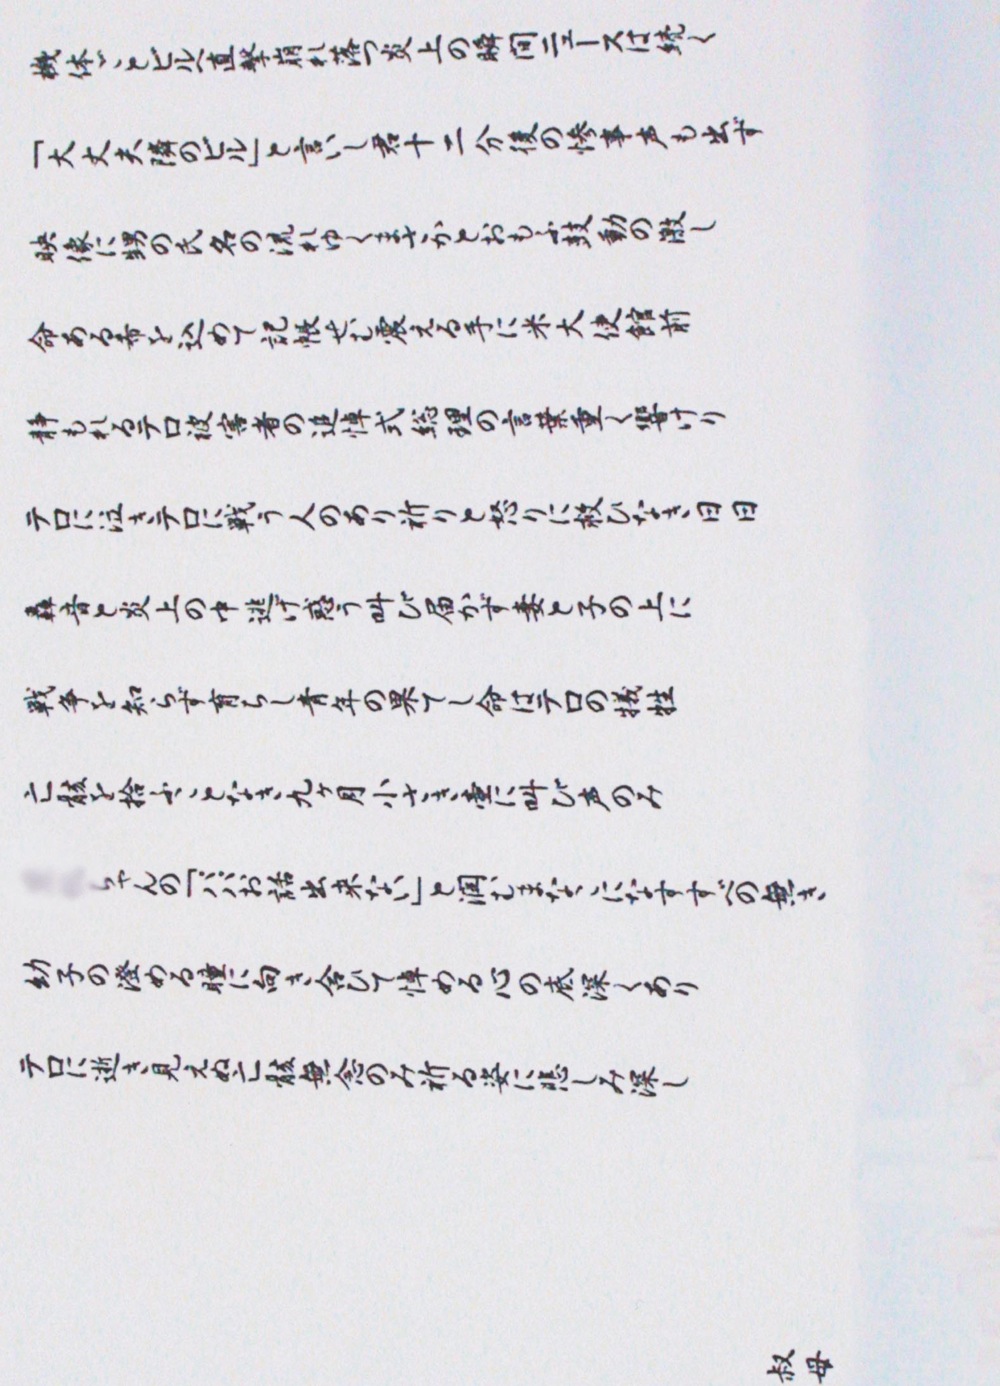 機体ごとビル直撃崩れ落つ炎上の瞬間ニュースは続く
「大丈夫隣のビル」と言いし君十二分後の惨事声も出ず
映像に甥の氏名の流れゆくまさかとおもふ鼓動の激し
命ある希を込めて記帳せむ震える手に米大使館前
静もれるテロ被害者の追悼式総理の言葉重く響けり
テロに泣きテロに戦う人のあり祈りと怒りに救ひなき日日
轟音と炎上の中逃げ惑う叫び届かず妻と子の上に
戦争を知らず育ちし青年の果てし命はテロの犠牲
亡骸を拾ふことなき九ケ月小さき壷に叫び声のみ
ちゃんの「パパお話出来ない」と潤むまなこになすすべの無き
幼子の澄める瞳に向き合いて悼める心の底深くあり
テロに逝き見えぬ亡骸無念のみ祈る姿に悲しみ深し
叔母